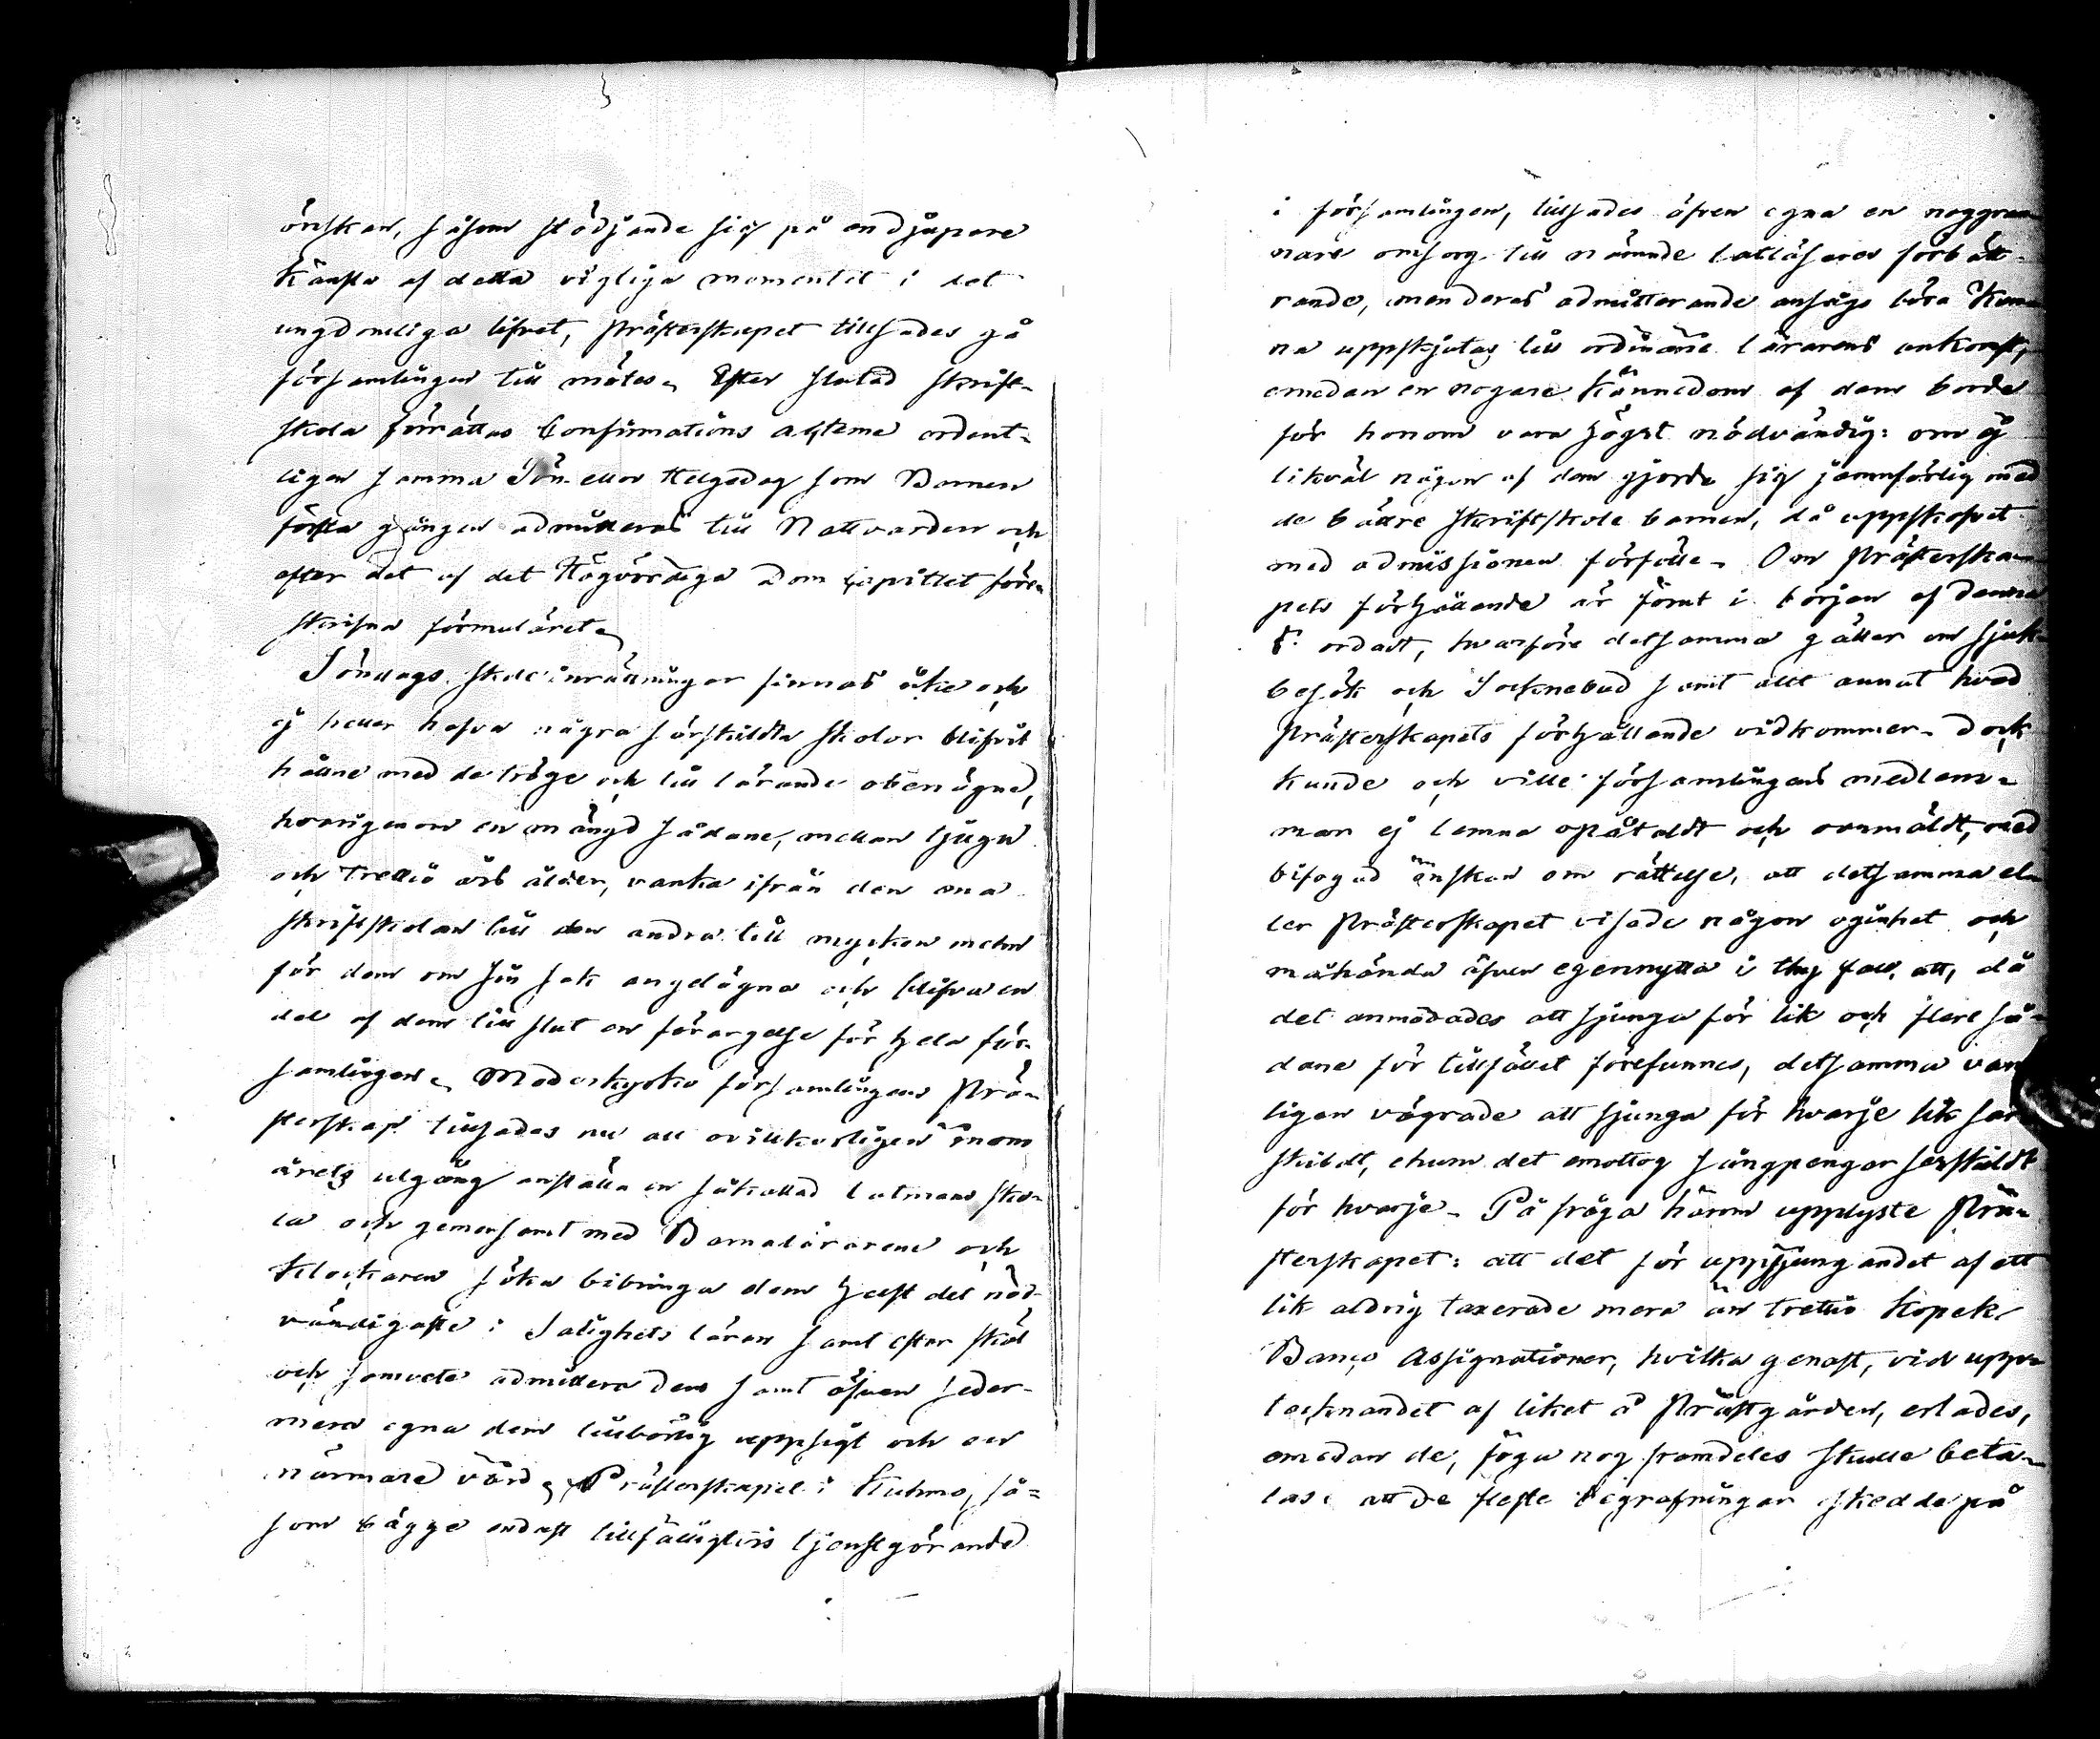 önskan, såsom stödjande sig på en djupare
känsla af detta vigtiga momentet i det
ungdomliga lifvet, Prästerskapet tillsades gå
församlingen till mötes. Efter slutad skrift-
skola förrättas Confirmations Acterne ordent-
ligen samma Sön- eller Helgedag som Barnen
första gången admitteras till Nattvarden och
efter det af det Högvördiga Dom Capitlet före-
skrifna formuläret.
Söndags skole inrättningar finnas icke och
ej heller hafva några särskildta skolor blifvit
hållne med de tröge och till lärande obenägne,
hvarigenom en mängd sådane, mellan tjugu
och trettio års ålder, vanka ifrån den ena
skriftskolan till den andra till mycken mehn
för dem om sin sak angelägna och blifva en
del af dem till slut en förargelse för hela för-
samlingen. Moderkyrko församlingens Prä-
sterskap tillsades nu att ovillkorligen inom
årets utgång anställa en såkallad Latmans sko-
la och gemensamt med Barnaläraren och
Klockaren söka bibringa dem helst det nöd-
vändigaste i Salighets läran samt efter skäl
och samvete admittera dem samt äfven seder-
mera egna dem tillbörlig uppsigt och en
närmare vård. Prästerskapet i Kuhmo, så-
som bägge endast tillfälligtvis tjenstgörande
i församlingen, tillsades äfven egna en noggran-
nare omsorg till nämnde latläsares förbätt-
rande, men deras admitterande ansågs böra kun-
na uppskjutas till ordinarie lärarens ankomst,
emedan en nogare kännedom af dem borde
för honom vara högst nödvändig: om ej
likväl någon af dem gjorde sig jemnförlig med
de bättre skriftskole barnen, då uppskofvet
med admissionen förfölle. Om Prästerska-
pets förhållande är förut i början af denna
§. ordadt, hvarföre detsamma gäller om sjuk-
besök och Socknebud samt allt annat hvad
Prästerskapets förhållande vidkommer. Dock
kunde och ville församlingens medlem-
mar ej lemna opåtaldt och oanmäldt, med
bifogad önskan om rättelse, att detsamma el-
ler Prästerskapet visade någon oginhet och
måhända äfven egennytta i thy fall, att, då
det anmodades att sjunga för lik och flere så-
dane för tillfället förefunnes, detsamma van
ligen vägrade att sjunga för hvarje lik sär
skildt, ehuru det emottog sångpengar serskildt
för hvarje. På fråga härom upplyste Prä-
sterskapet: att det för uppsjungandet af ett
lik aldrig taxerade mera än trettio Kopek
Banco Assignationer, hvilka genast, vid upp-
tecknandet af liket å Prästgården, erlades,
emedan de, föga nog framdeles skulle beta-
las: att de fleste begrafningar skedde på